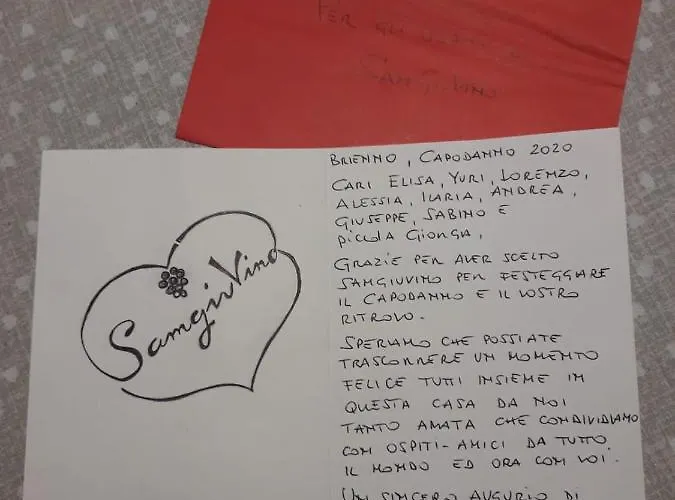 PER GLI
SAMGIUVINO
BRIENNO, CAPODANNO 2020
CARI ELISA, YURI, LORENZO,
ALESSIA, ILARIA, ANDREA,
GIUSEPPE, SABINO E
PICCOLA GIORGIA,
GRAZIE PER AVER SCELTO
SAMGIUVINO PER FESTEGGIARE
IL CAPODANNO E IL VOSTRO
RITROVO.
SamgiuVino
SPERIAMO CHE POSSIATE
TRASCORRERE UN MOMENTO
FELICE TUTTI INSIEME IN
QUESTA CASA DA NOI
TANTO AMATA CHE CONDIVIDIAMO
CON OSPITI-AMICI DA TUTTO
IL MONDO ED ORA CON VOI.
UN SINCERO AUGURIO DI